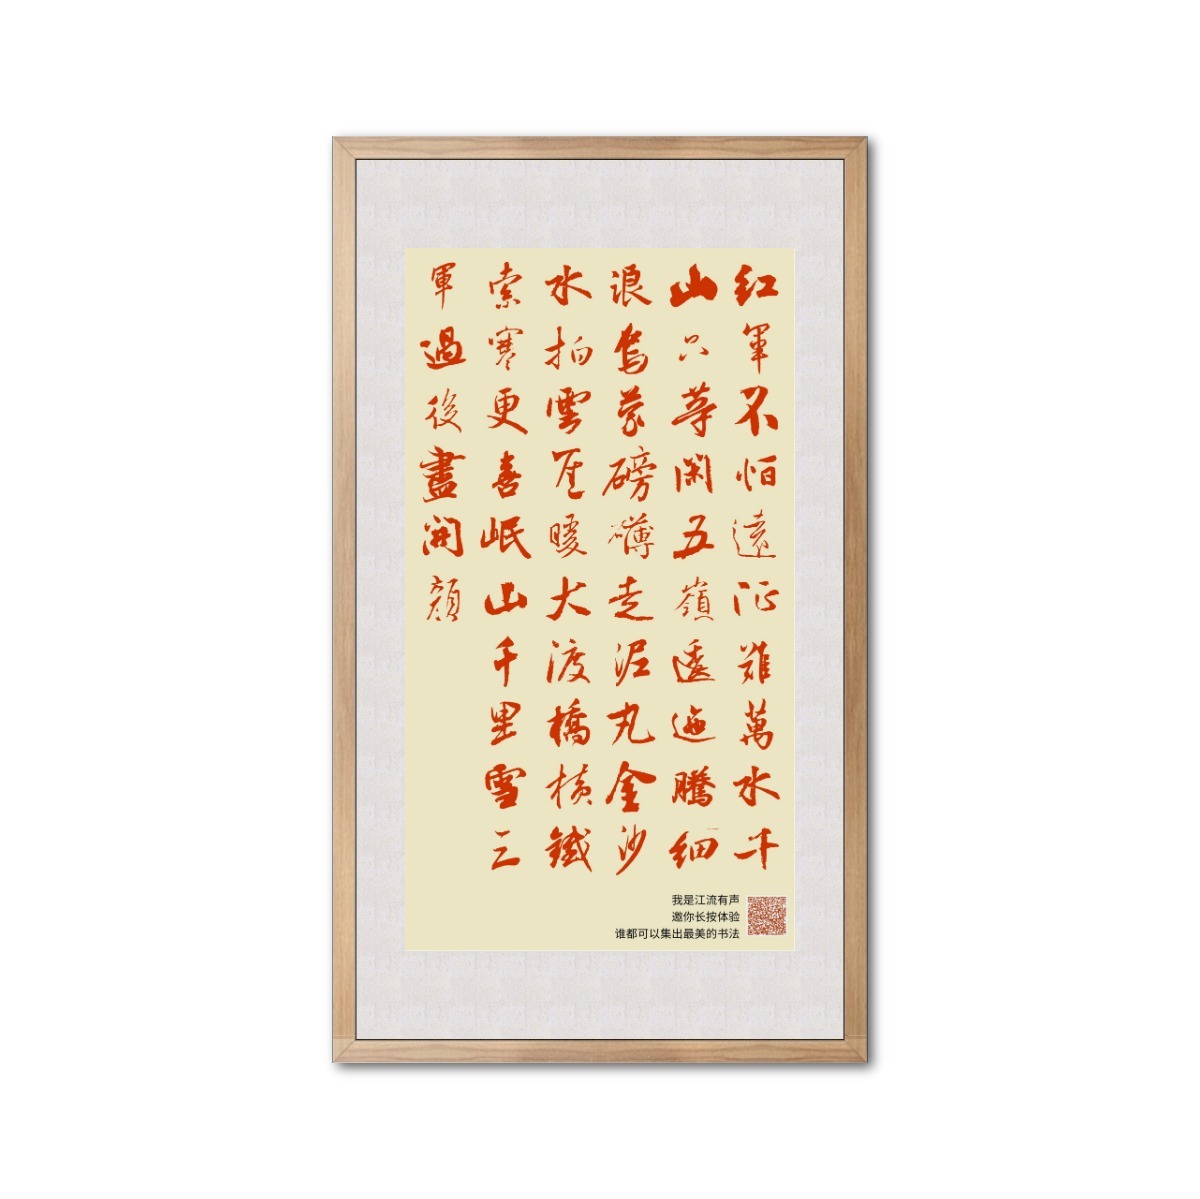 红軍不怕遠征難萬水千
山只等閑五嶺逶迤騰细
浪烏蒙磅礴走泥丸金沙
水拍雲崖暖大渡橋橫鐵
索寒更喜岷山千里雪三
軍過後盡開顔
我是江流有声
邀你长按体验
谁都可以集出最美的书法